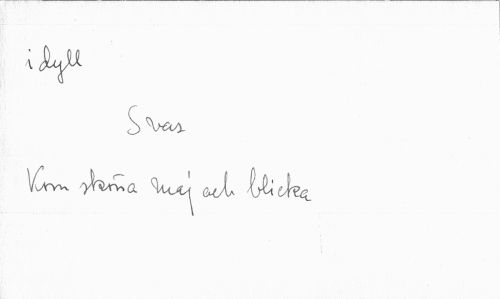 idyll
Svas
Kom sköna maj och blicka